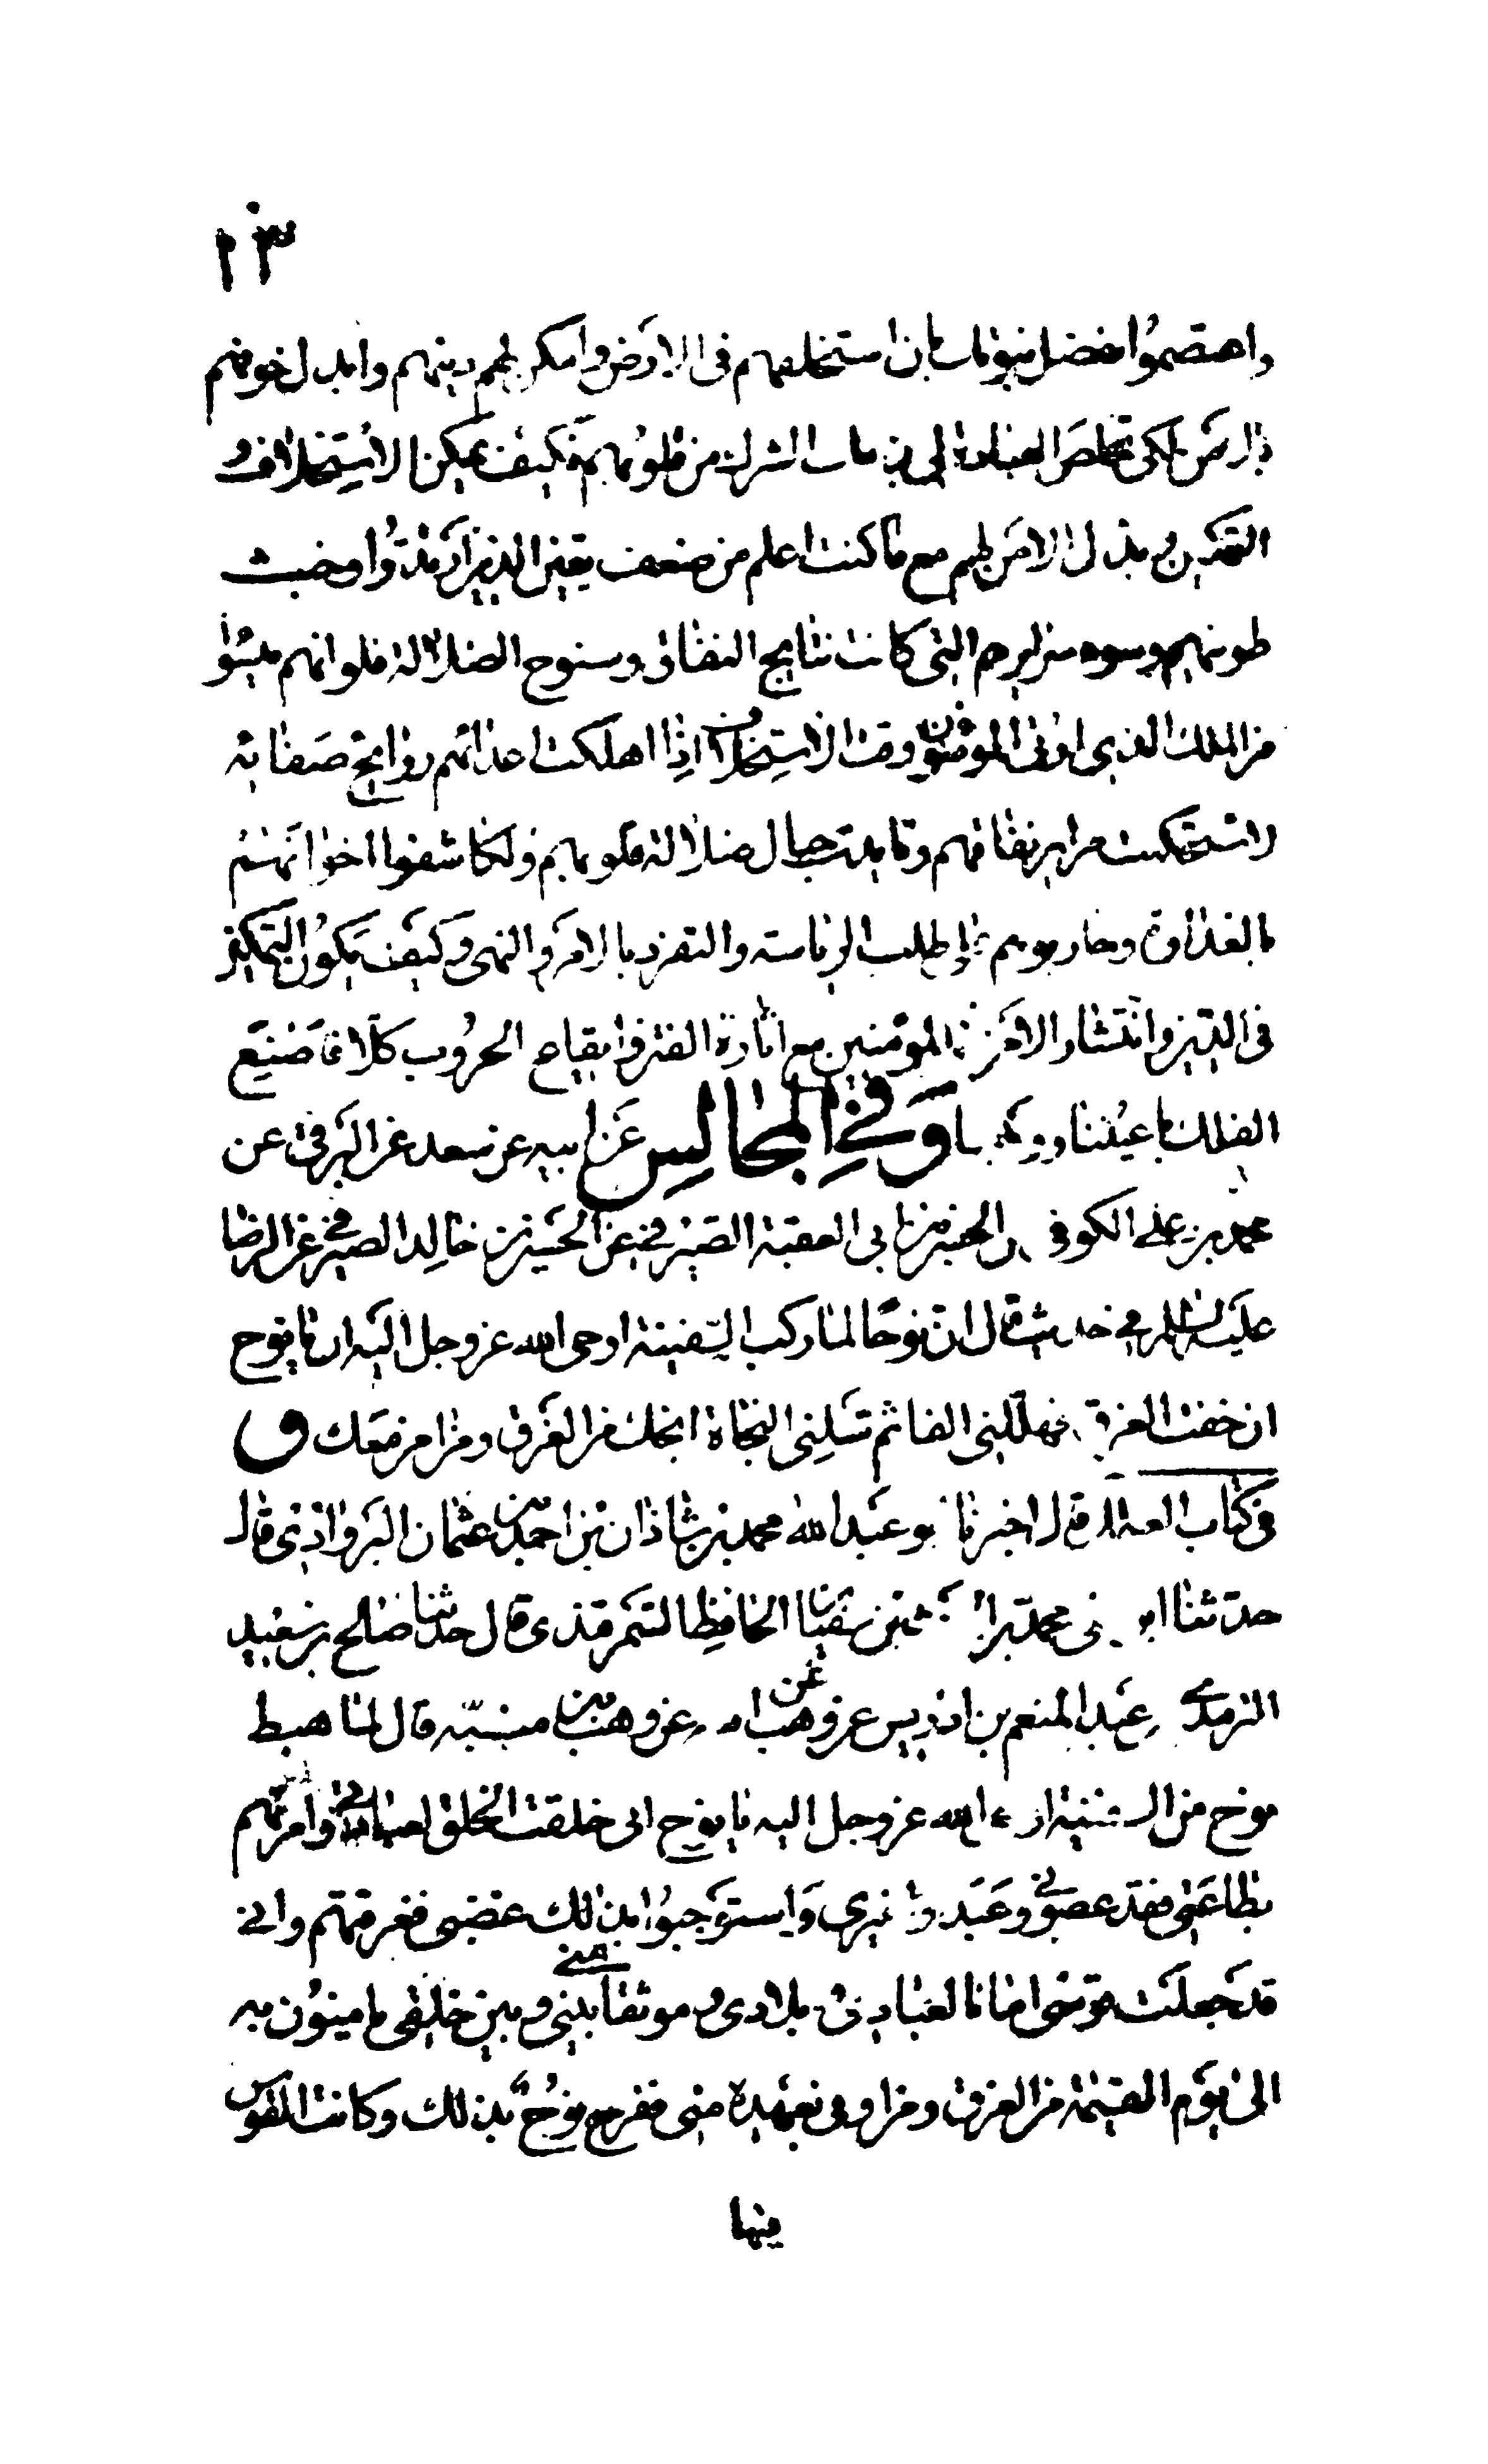 ١٠٣
واعتصموا بفضل نبوة بان استخلفهم في الارض وامكن لهم دينهم وابدل خوفهم
بالامن لكي تخلص العبادة لي بذهاب الشرك من قلوبهم فكيف يمكن الاستخلاف و
التمكين وبذل الامن لهم مع ما كنت اعلم من ضعف يقين الذين ارتدوا وخبث
طينتهم وسوء سرايرهم التي كانت نتايج النفاق وسنوح الضلالة فلو انهم
من الملك الذي اوتي المؤمنون وقت الاستخلاف اذا اهلكت اعدائهم روايح صفاته
لاستحكمت مراير نفاقهم و حبال ضلالة قلوبهم ولكاشفوا اخوانهم
بالعداوة وحاربوهم علي طلب الرياسة والتفرد بالامر والنهي وكيف يكون التمكين
في الدين وانتشار الامر في المؤمنين مع اثارة الفتن وايقاع الحروب كلا فاصنع
الفلك باعيننا ووحينا وفي المجالس عن ابيه عن سعد عن البرقي عن
محمد بن علي الكوفي عن الحسن بن ابي العقبة الصيرفي عن الحسين بن خالد الصيرفي عن الرضا
عليه السلام في حديث قال ان نوحا لما ركب السفينة اوحى الله عز وجل اليه ان يا نوح
ان خفت الغرق فهللني الفا ثم سلني النجاة انجك من الغرق ومن امن معك و
في كتاب العلل قال اخبرنا ابو عبد الله محمد بن شاذان بن احمد بن عثمان البروازي قال
حدثنا ابو علي محمد بن محمد بن الحرث بن سفيان الحافظ السمرقندي قال حدثنا صالح بن سعيد
الترمذي عن عبد المنعم بن ادريس عن ابيه عن وهب بن منبه قال لما هبط
نوح من السفينة اوحى الله عز وجل اليه يا نوح اني خلقت الخلق لعبادتي وامرتهم
بطاعتي فقد عصوني وعبدوا غيري واستوجبوا بذلك غضبي فغرقتهم واني
قد جعلت قوسي امانا لعبادي و بلادي وموثقا مني بيني وبين خلقي يامنون به
الى يوم القيمة من الغرق ومن اوفى بعهده مني ففرح نوح بذلك وكانت القوس
فيها